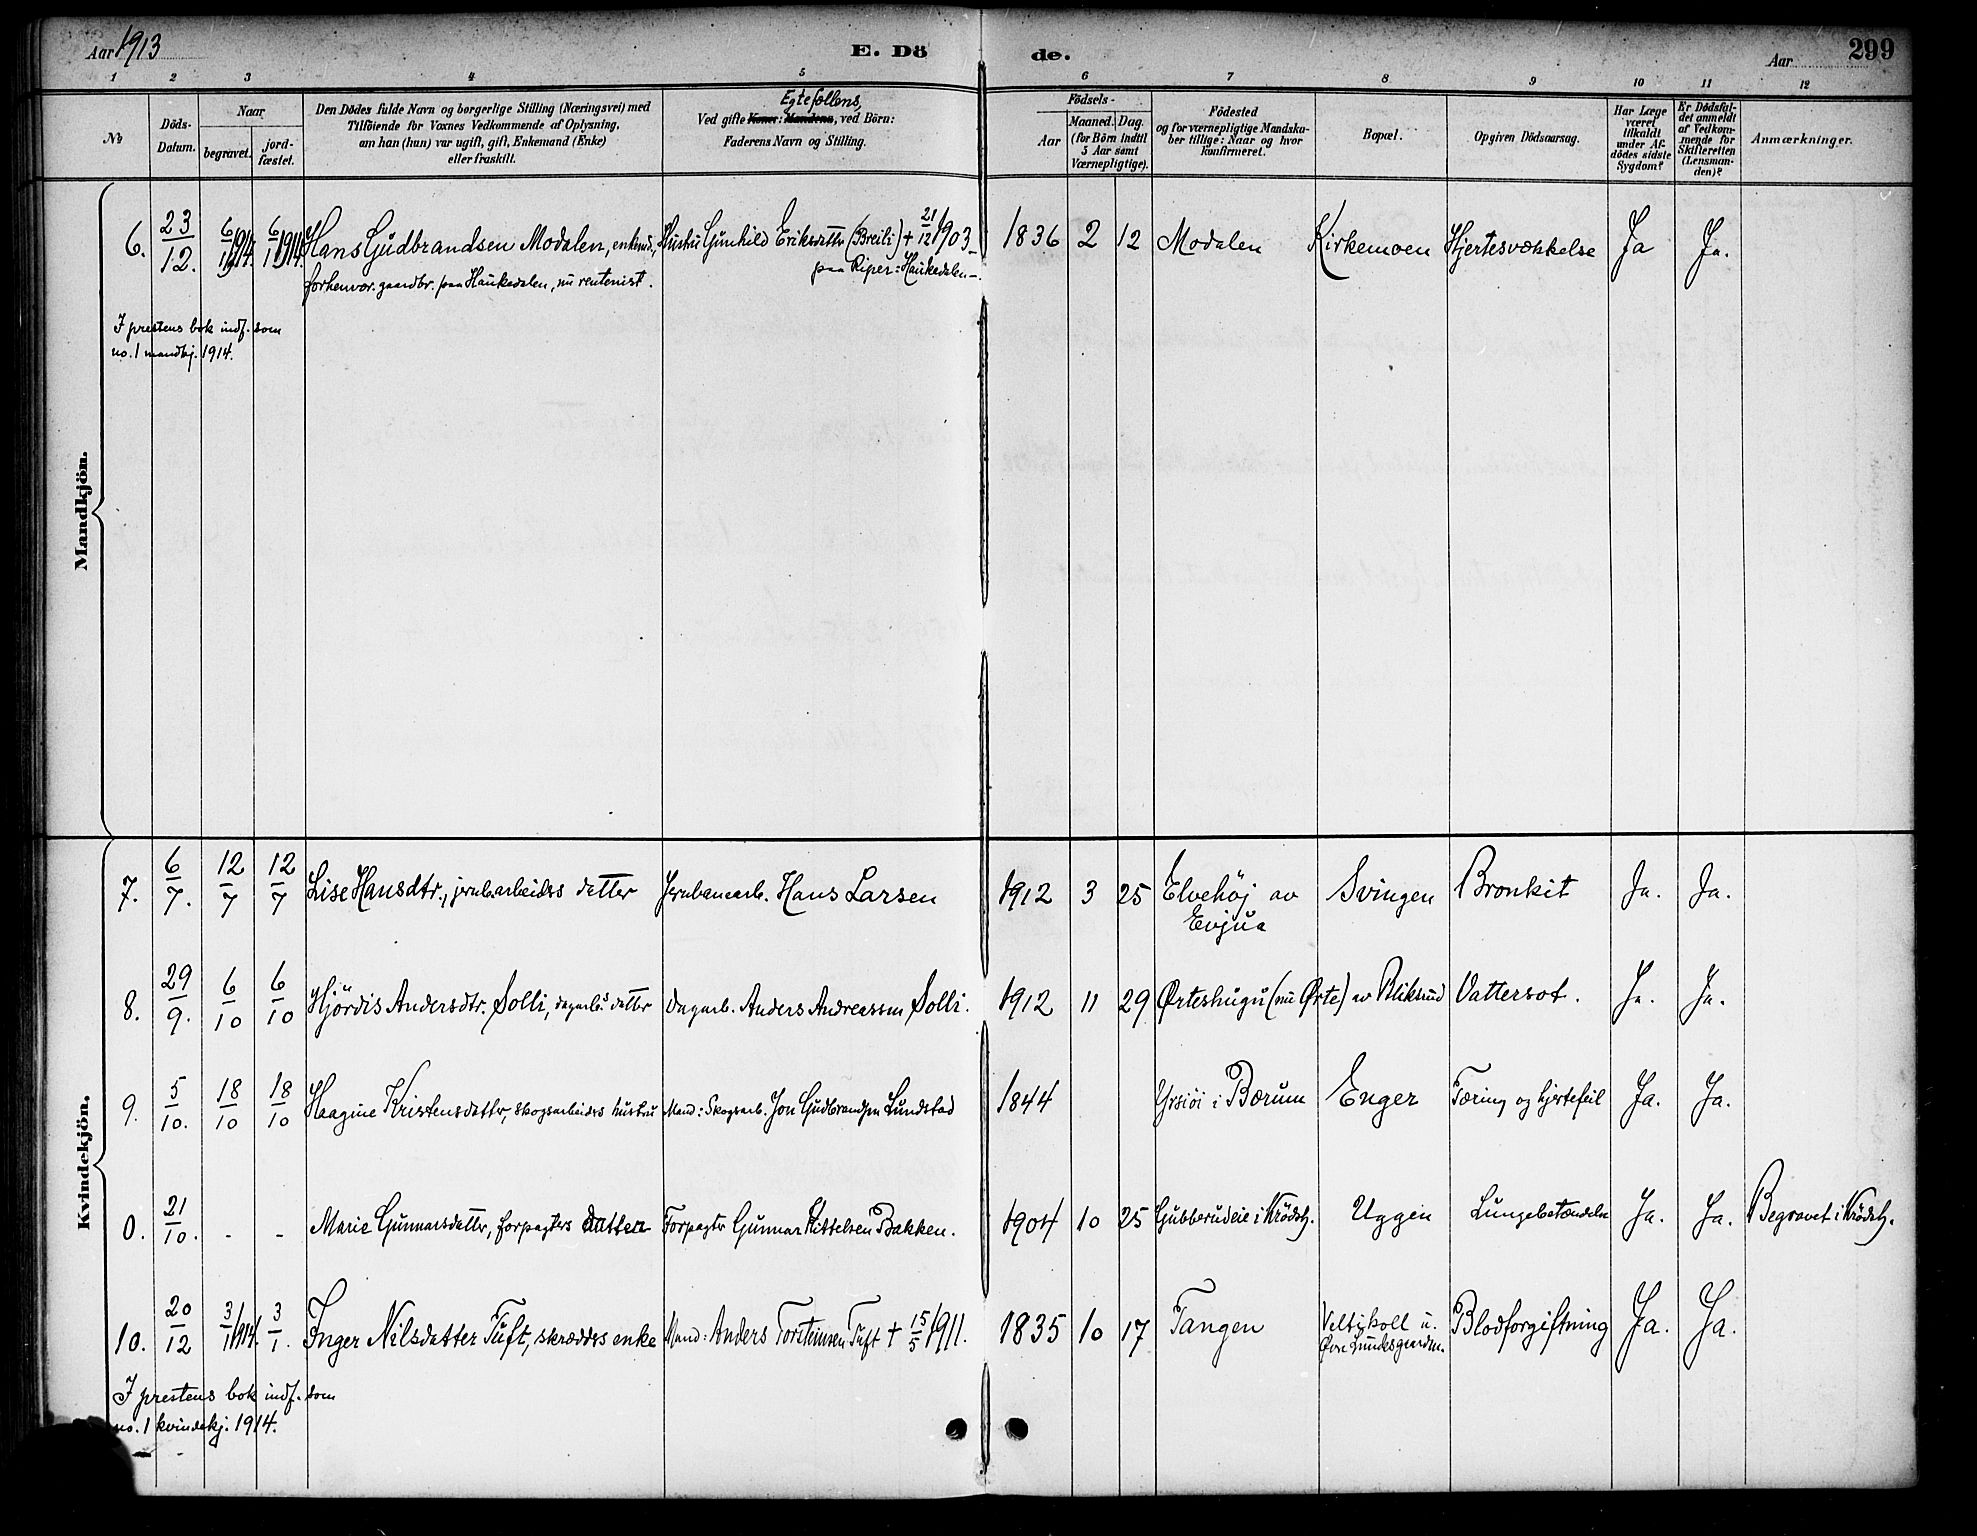 Aar 1913
E. Dö
de.
Aar
299
1 2 3 4 5 6 7 8 9 10 11 12
№
Döds-
Datum.
Naar
begravet.
jord-
fæstet.
Den Dödes fulde Navn og borgerlige Stilling (Næringsvei) med
Tilföiende for Voxnes Vedkommende af Oplysning,
om han (hun) var ugift, gift, Enkemand (Enke)
eller fraskilt.
Egtefællens,
Ved gifte Koner: Mandens, ved Börn:
Faderens Navn og Stilling.
Födsels-
Aar
Maaned. Dag.
(for Börn indtil
5 Aar samt
Værnepligtige).
Födested
og for værnepligtige Mandska-
ber tillige: Naar og hvor
konfirmeret.
Bopæl.
Opgiven Dödsaarsag.
Har Læge
været
tilkaldt
under Af-
dödes sidste
Sygdom?
Er Dödsfal-
det anmeldt
af Vedkom-
mende for
Skifteretten
(Lensman-
den)?
Anmærkninger.
Mandkjön.
6. 23/12. 6/1 1914. 6/1 1914. Hans Gudbrandsen Modalen, enkmd., Hustru Gunhild Eriksdattr (Breili) + 21/12 1903 - 1836 2 12 Modalen Kirkemoen Hjertesvækkelse Ja Ja.
forhenvær. gaardbr. paa Haukedalen, nu rentenist. paa Riper: Haukedalen -
I prestens bok indf. som
no. 1 mandkj. 1914.
Kvindekjön.
7. 6/7. 12/7 12/7 Lise Hansdtr., jernbarbeiders datter Jernbanearb. Hans Larsen 1912 3 25 Elvehöj av Svingen Bronkit Ja. Ja.
Evjua
8. 29/9. 6/10 6/10 Hjördis Andersdtr. Solli, dagarb.s datter Dagarb. Anders Andreassen Solli. 1912 11 29 Ørteshugu (nu Ørte) av Bliksrud Vattersot. Ja. Ja.
9. 5/10. 18/10 18/10 Haagine Kristensdatter, skogsarbeiders hustru Mand: Skogsarb. Jon Gudbrandsen Lundstad 1844 i Bærum Enger Tæring og hjertefeil Ja. Ja.
0. 21/10. - - Marie Gunnarsdatter, forpagters datter Forpagter Gunnar Kittelsen Bakken. 1904 10 25 Gubberudeie i Krödsh. Uggen Lungebetændelse Ja. Ja. Begravet i Krödsh.
10. 20/12 3/1 1914. 3/1. Inger Nilsdatter Tuft, skrædders enke Mand: Anders Torsteinsen Tuft + 15/5 1911. 1835 10 17 Tangen Veltikoll u. Blodforgiftning Ja. Ja.
Övre Lundesgaarden.
I prestens bok indf. som
no. 1 kvindekj. 1914.